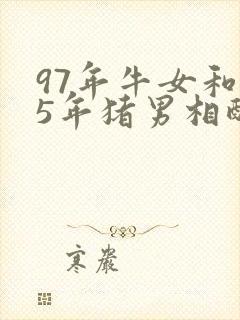 97年牛女和
5年猪男相配
寒岩